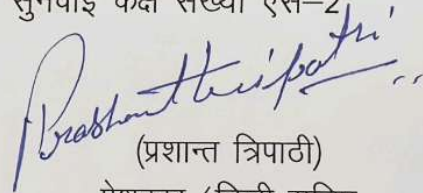 सुनवाई कक्ष संख्या एस–2
Prashant tripathi
(प्रशान्त त्रिपाठी)